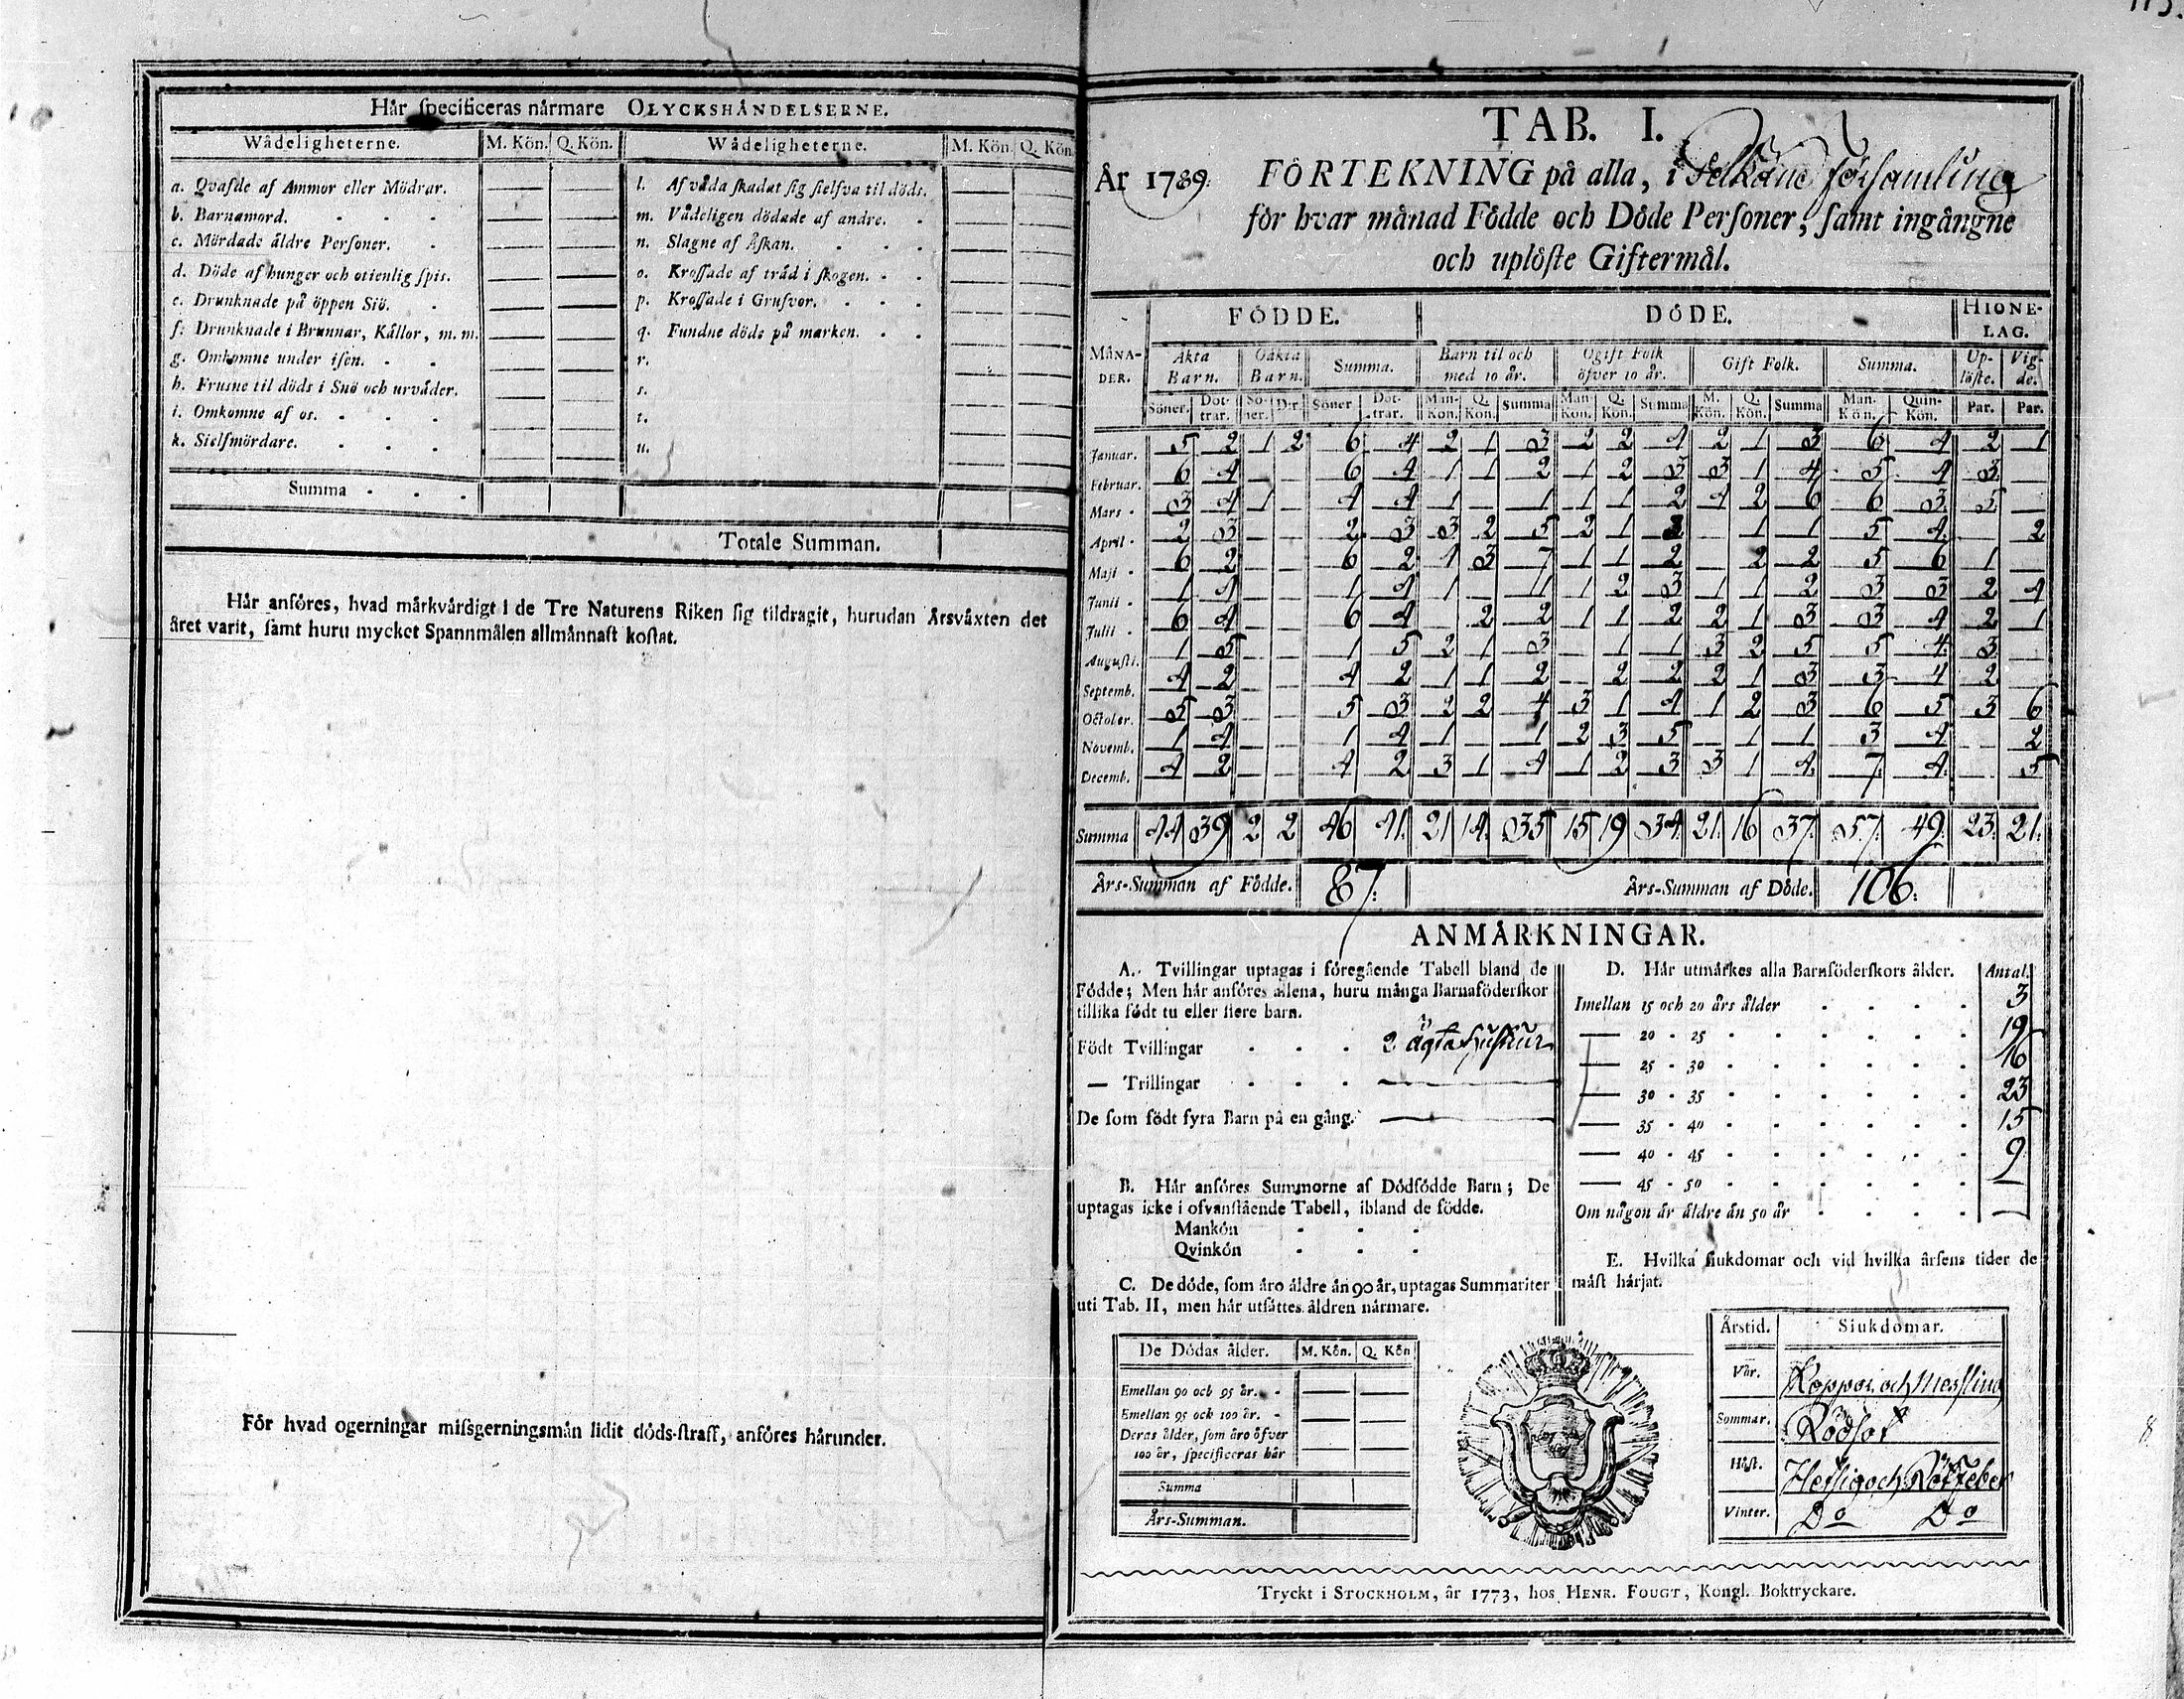 Här specificeras närmare OLYCKSHÄNDELSERNE.
Wådeligheterne. M. Kön. Q. Kön. Wådeligheterne. M. Kön. Q. Kön
a. Qvafde af Ammor eller Mödrar. — — l. Af våda skadat sig sielfva til döds. — —
b. Barnamord. — — m. Vådeligen dödade af andre. — —
c. Mördade äldre Personer. — — n. Slagne af Åskan. — —
d. Döde af hunger och otienlig spis. — — o. Krossade af träd i skogen. — —
e. Drunknade på öppen Siö. — — p. Krossade i Grufvor. — —
f. Drunknade i Brunnar, Källor, m. m. — — q. Fundne döde på marken. — —
g. Omkomne under isen. — — r. — —
h. Frusne til döds i Snö och urväder. — — s. — —
i. Omkomne af os. — — t. — —
k. Sielfmördare. — — u. — —
Summa
Totale Summan.
Här anföres, hvad märkvärdigt i de Tre Naturens Riken sig tildragit, hurudan Årsväxten det
året varit, samt huru mycket Spannmålen allmännast kostat.
För hvad ogerningar missgerningsmän lidit döds-straff, anföres härunder.
TAB. I.
År 1789. FÖRTEKNING på alla, i Selkäne församling
för hvar månad Födde och Döde Personer, samt ingångne
och uplöste Giftermål.
FÖDDE. DÖDE. HIONE-LAG.
MÅNADER. Äkta Barn. Oäkta Barn. Summa. Barn til och med 10 år. Ogift Folk öfver 10 år. Gift Folk. Summa. Uplöste. Vigde.
Söner. Döttrar. Söner. D:r. Söner Döttrar. Man-Kön. Q. Kön. Summa Man Kön. Q. Kön. Summa M. Kön. Q. Kön. Summa Man. Kön. Quin-Kön. Par. Par.
Januar. 5 2 1 2 6 4 2 1 3 2 2 4 2 1 3 6 4 2 1
Februar. 6 4 — — 6 4 1 1 2 1 2 3 3 1 4 5 4 3 —
Mars 3 4 1 — 4 4 1 — 1 1 1 2 4 2 6 6 3 5 —
April 2 3 — — 2 3 3 2 5 2 1 3 — 1 1 5 4 — 2
Maji 6 2 — — 6 2 4 3 7 1 1 2 — 2 2 5 6 1 —
Junii 1 4 — — 1 4 1 — 1 1 2 3 1 1 2 3 3 2 4
Julii 6 4 — — 6 4 — 2 2 1 1 2 2 1 3 3 4 2 1
Augusti. 1 5 — — 1 5 2 1 3 — 1 1 3 2 5 5 4 3 —
Septemb. 4 2 — — 4 2 1 1 2 — 2 2 2 1 3 3 4 2 —
October. 5 3 — — 5 3 2 2 4 3 1 4 1 2 3 6 5 3 6
Novemb. 1 4 — — 1 4 1 — 1 2 3 5 — 1 1 3 4 — 2
Decemb. 4 2 — — 4 2 3 1 4 1 2 3 3 1 4 7 4 — 5
Summa 44 39 2 2 46 41 21 14 35 15 19 34 21 16 37 57 49 23 21
Års-Summan af Födde. 87. Års-Summan af Döde. 106.
ANMÄRKNINGAR.
A. Tvillingar uptagas i föregående Tabell bland de
Födde; Men här anföres allena, huru många Barnaföderskor
tillika födt tu eller flere barn.
Födt Tvillingar 2 ägta
— Trillingar —
De som födt fyra Barn på en gång. —
B. Här anföres Summorne af Dödfödde Barn; De
uptagas icke i ofvanstående Tabell, ibland de födde.
Mankön
Qvinkön
C. De döde, som äro äldre än 90 år, uptagas Summariter
uti Tab. II, men här utsättes åldren närmare.
De Dödas ålder. M. Kön. Q. Kön
Emellan 90 och 95 år. — —
Emellan 95 och 100 år. — —
Deras ålder, som äro öfver
100 år, specificeras här — —
Summa
Års-Summan.
D. Här utmärkes alla Barnföderskors ålder. Antal.
Imellan 15 och 20 års ålder 3
— 20 - 25 19
— 25 - 30 16
— 30 - 35 23
— 35 - 40 15
— 40 - 45 9
— 45 - 50 —
Om någon är äldre än 50 år —
E. Hvilka siukdomar och vid hvilka årsens tider de
mäst härjat.
Årstid. Siukdomar.
Vår. Koppor och Messling
Sommar. Rödsot
Höst. Hetsig och Rötfeber
Vinter. Do Do
Tryckt i STOCKHOLM, år 1773, hos HENR. FOUGT, Kongl. Boktryckare.